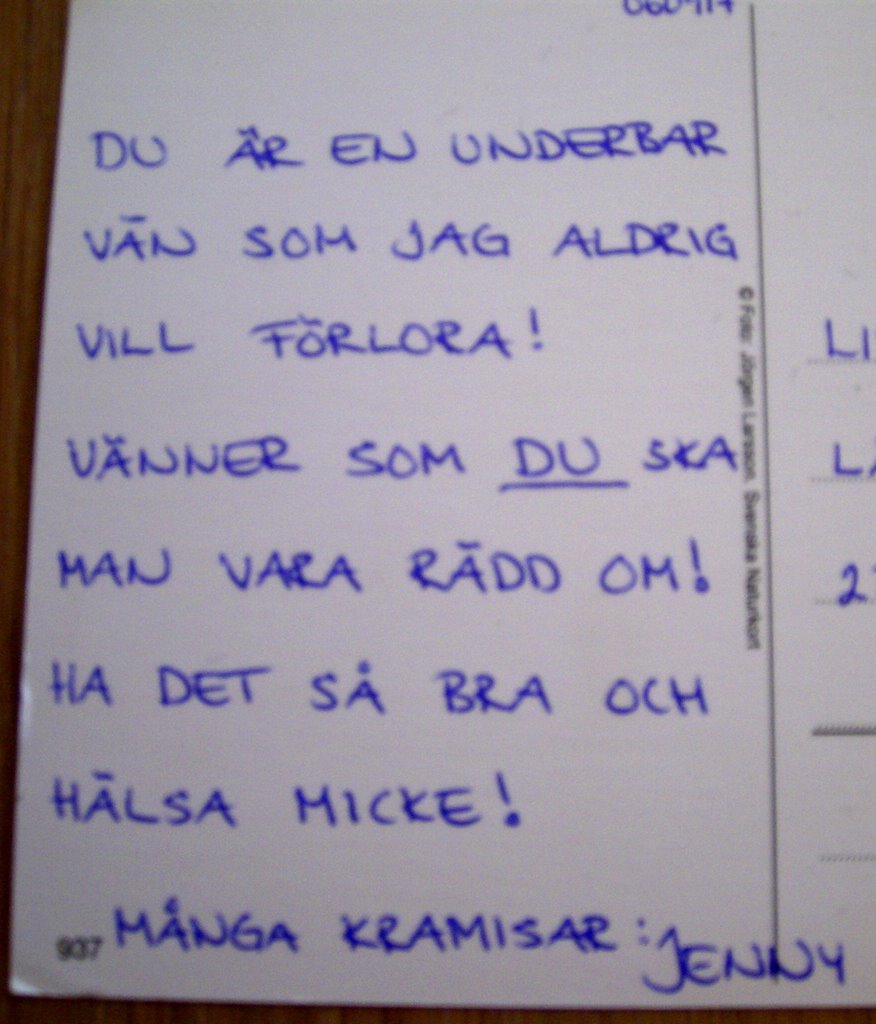 DU ÄR EN UNDERBAR
VÄN SOM JAG ALDRIG
VILL FÖRLORA!
VÄNNER SOM DU SKA
MAN VARA RÄDD OM!
HA DET SÅ BRA OCH
HÄLSA MICKE!
MÅNGA KRAMISAR: JENNY
937
© Foto: Jörgen Larsson, Svenska Naturkort